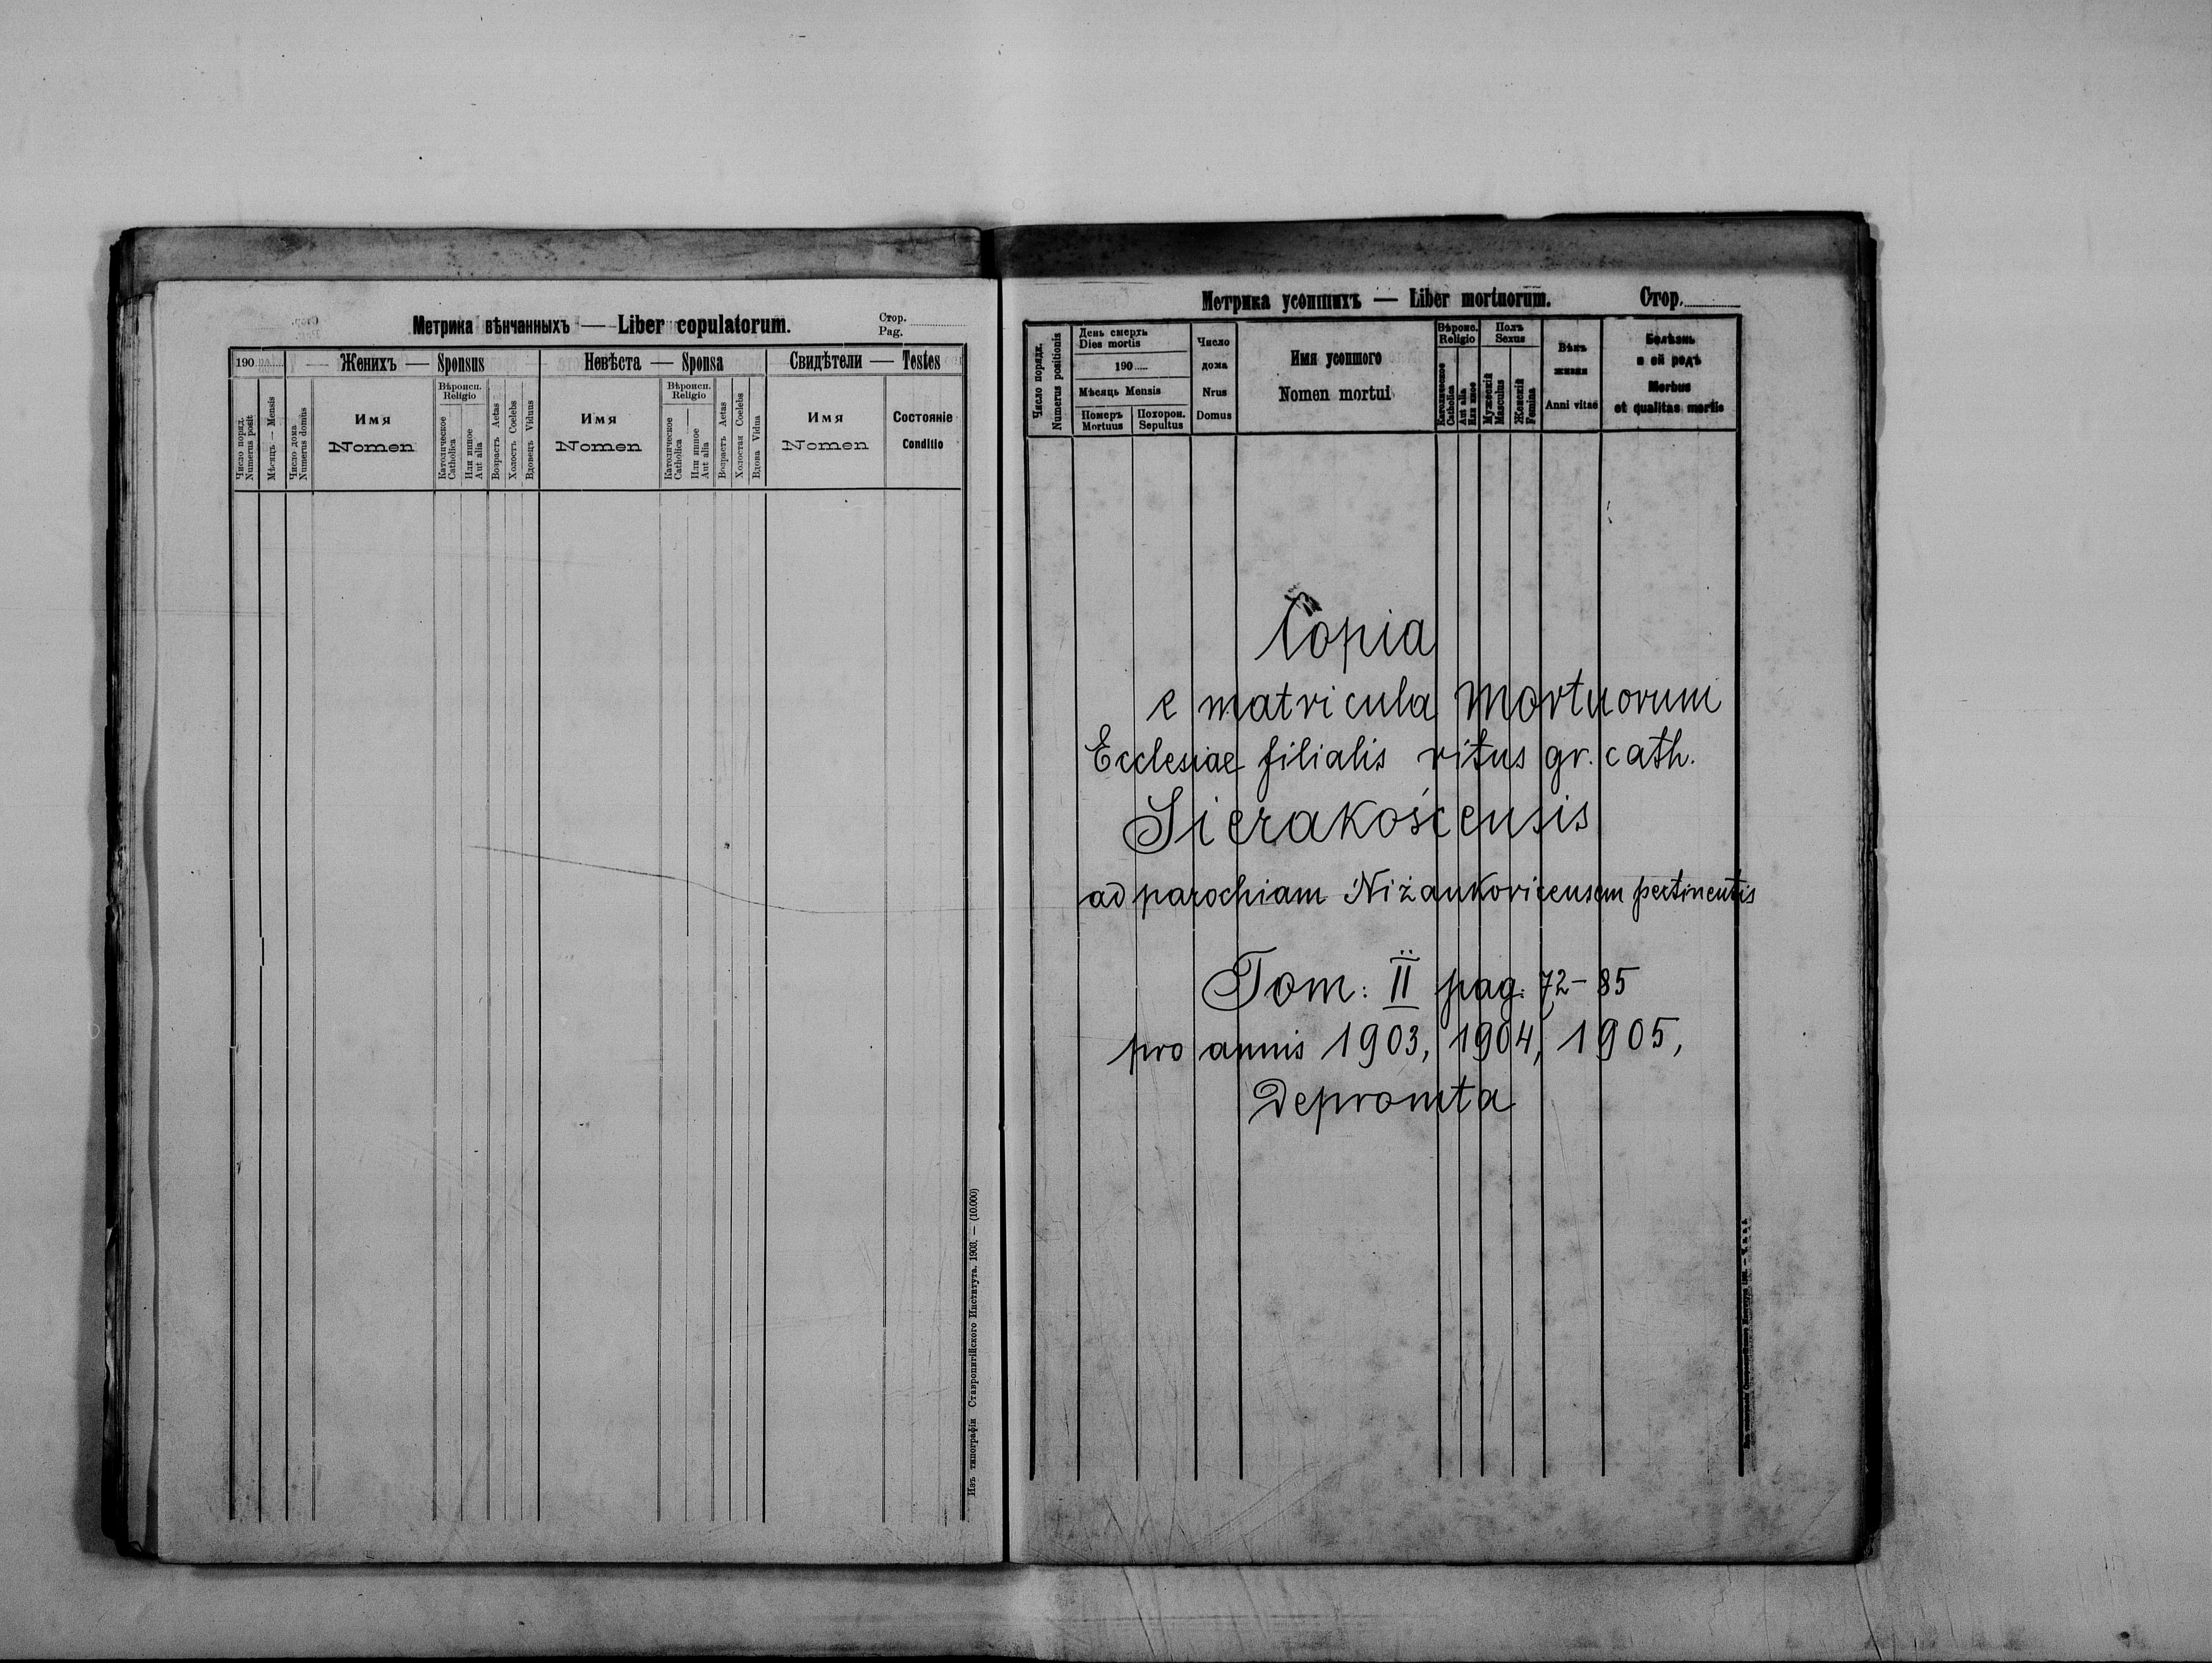 Метрика вѣнчанныхъ — Liber copulatorum.
Стор.
Pag.
190
Женихъ — Sponsus
Невѣста — Sponsa
Свидѣтели — Testes
Число поряд.
Numerus posit
Мѣсяць — Mensis
Число дома
Numerus domus
Имя
Nomen
Вѣроисп.
Religio
Католическое
Catholica
Или инное
Aut alia
Возрастъ Aetas
Холостъ Coelebs
Вдовецъ Viduus
Имя
Nomen
Вѣроисп.
Religio
Католическое
Catholica
Или инное
Aut alia
Возрастъ Aetas
Холостая Coelebs
Вдова Vidua
Имя
Nomen
Состояніе
Conditio
Изъ типографіи Ставропигійского Института. 1903. — (10.000)
Метрика усопшихъ — Liber mortuorum.
Стор.
Число порядк.
Numerus positionis
День смерть
Dies mortis
190
Мѣсяць Mensis
Померъ
Mortuus
Похорон.
Sepultus
Число
дома
Nrus
Domus
Имя усопшого
Nomen mortui
Вѣроис.
Religio
Католическое
Catholica
Aut alia
Или иное
Полъ
Sexus
Мужескій
Masculus
Женскій
Femina
Вѣкъ
жизни
Anni vitae
Болѣзнь
и ей родъ
Morbus
et qualitas mortis
Copia
e matricula Mortuorum
Ecclesiae filialis ritus gr. cath.
Sierakośceusis
ad parochiam Niżankovicensem pertinentis
Tom: II pag: 72-85
pro annis 1903, 1904, 1905,
Depromta